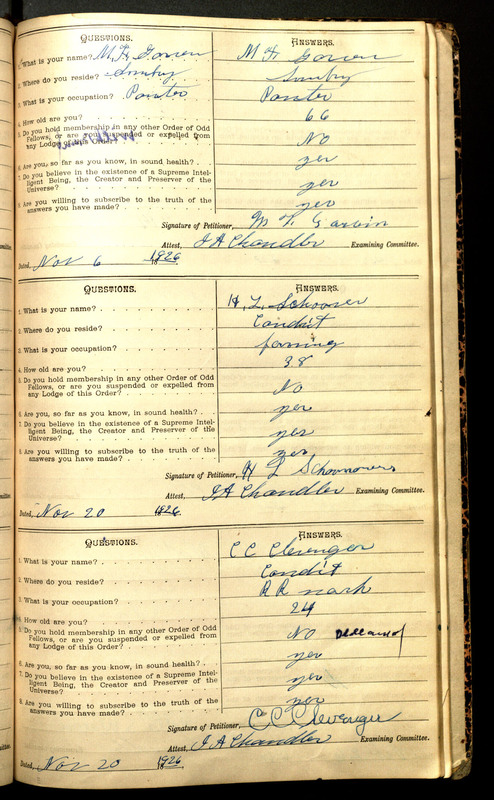 QUESTIONS. ANSWERS.
1. What is your name? M. H. M H
2. Where do you reside? Sunbry Sunbry
3. What is your occupation? Painter Painter
4. How old are you? 66
5. Do you hold membership in any other Order of Odd
Fellows, or are you suspended or expelled from
any Lodge of this Order? No
6. Are you, so far as you know, in sound health? yes
7. Do you believe in the existence of a Supreme Intel-
ligent Being, the Creator and Preserver of the
Universe? yes
8. Are you willing to subscribe to the truth of the
answers you have made? yes
Signature of Petitioner, M. H. Garvin
Attest, J A Chandler Examining Committee.
Dated, Nov 6 1926
QUESTIONS. ANSWERS.
1. What is your name? H. L. Schooner
2. Where do you reside? Condit
3. What is your occupation? farming
4. How old are you? 38
5. Do you hold membership in any other Order of Odd
Fellows, or are you suspended or expelled from
any Lodge of this Order? No
6. Are you, so far as you know, in sound health? yes
7. Do you believe in the existence of a Supreme Intel-
ligent Being, the Creator and Preserver of the
Universe? yes
8. Are you willing to subscribe to the truth of the
answers you have made? yes
Signature of Petitioner, H L Schoonover
Attest, J A Chandler Examining Committee.
Dated, Nov 20 1926
QUESTIONS. ANSWERS.
1. What is your name? C C Clevenger
2. Where do you reside? Condit
3. What is your occupation? R R
4. How old are you? 24
5. Do you hold membership in any other Order of Odd
Fellows, or are you suspended or expelled from
any Lodge of this Order? No
6. Are you, so far as you know, in sound health? yes
7. Do you believe in the existence of a Supreme Intel-
ligent Being, the Creator and Preserver of the
Universe? yes
8. Are you willing to subscribe to the truth of the
answers you have made? yes
Signature of Petitioner, C C Clevenger
Attest, J A Chandler Examining Committee.
Dated, Nov 20 1926